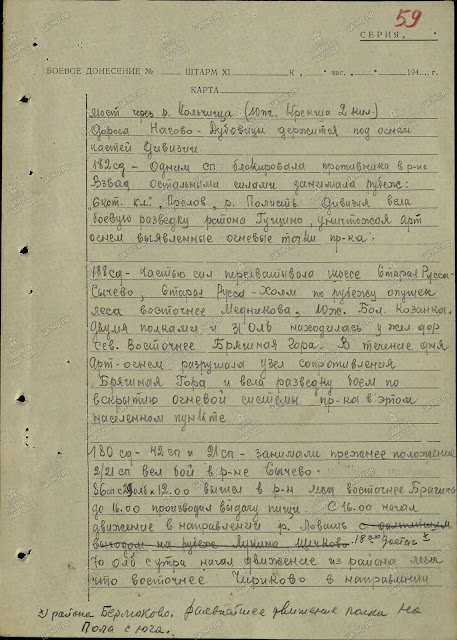 59
СЕРИЯ.
БОЕВОЕ ДОНЕСЕНИЕ № ШТАРМ XI К час. 194 г.
КАРТА
Мост через р. Колпинца (Юж. 2 кил.)
Дорога Нагово - Дубовицы держится под огнем
частей дивизии.
182 сд - Одним сп блокировала противника в р-не
Взвад остальными силами занимала рубеж:
кл. р. Полисть Дивизия вела
боевую разведку района Гущино, уничтожая арт
огнем выявленные огневые точки пр-ка.
188 сд - Частью сил перехватывала шоссе Старая Русса-
Сычево, Старая Русса - Холм по рубежу опушек
леса восточнее Медниково, Юж. Бол. Козанка.
Двумя полками и 31 олб находилась у жел дор
Сев. Восточнее Бряшная Гора. В течение дня
Арт-огнем разрушала узел сопротивления
Бряшная Гора и вела разведку боем по
вскрытию огневой системы пр-ка в этом
населенном пункте
180 сд - 42 сп и 21 сп - занимали прежнее положение
2/21 сп вел бой в р-не Сычево.
86 сп с олб к 12.00 вышел в р-н леса восточнее Брагино
до 16.00 производил выдачу пищи. С 16.00 начал
движение в направлении р. Ловать с дальнейшим
выходом на рубеж Лунино Щечково. 18.00 достиг х)
70 олб с утра начал движение из района леса
что восточнее Чириково в направлении
х) района Бермаково. Дальнейшее движение полка на
Пола с юга.